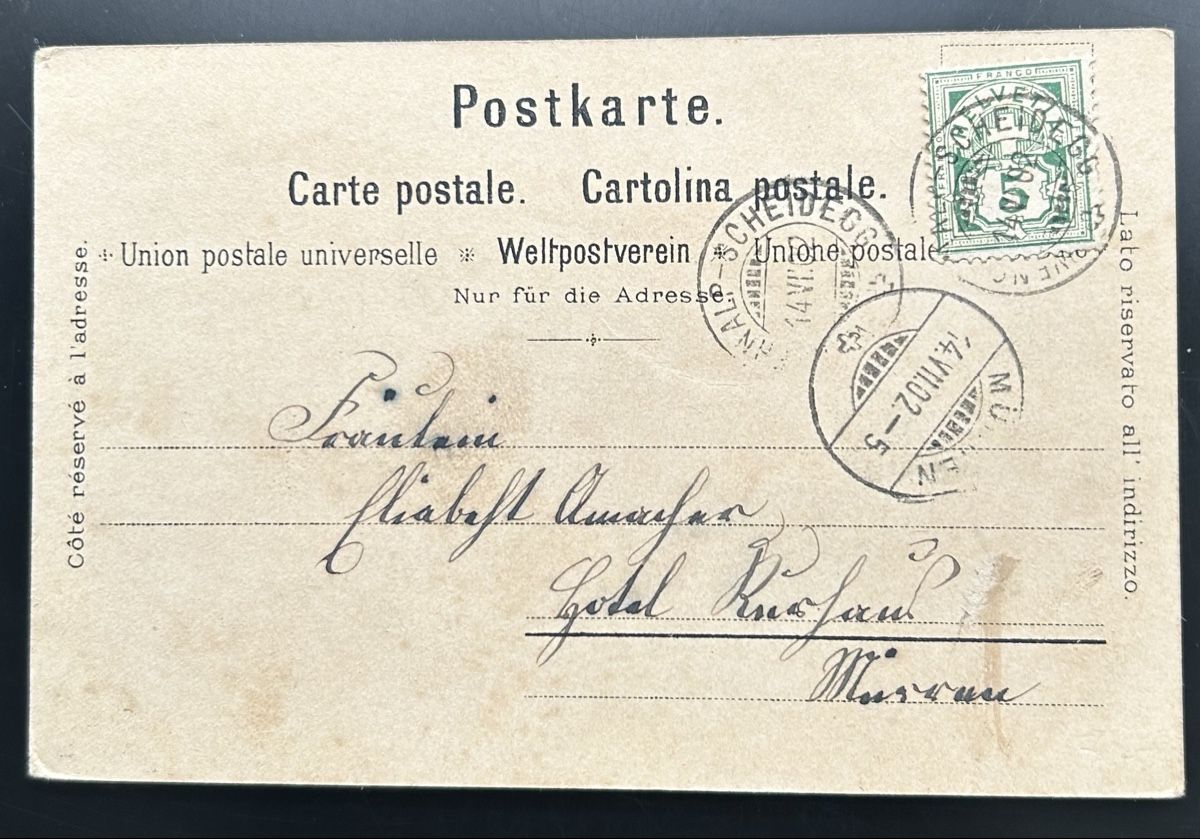 Postkarte.
Carte postale. Cartolina postale.
Union postale universelle * Weltpostverein * Unione postale
Nur für die Adresse.
Côté réservé à l'adresse.
Lato riservato all' indirizzo.
FRANCO
HELVETIA
5
SCHEIDEGG
SCHEIDEGG
14.VII.
14.VII.02–5
MÜRREN
Fräulein
Elisabeht Amacher
Hotel Kurhaus
Mürren